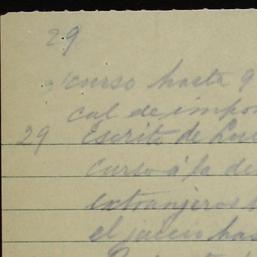 29
curso hasta 9
cal de impor
29 Escrito de Lui
curso á la de
extranjeros
el jucio has